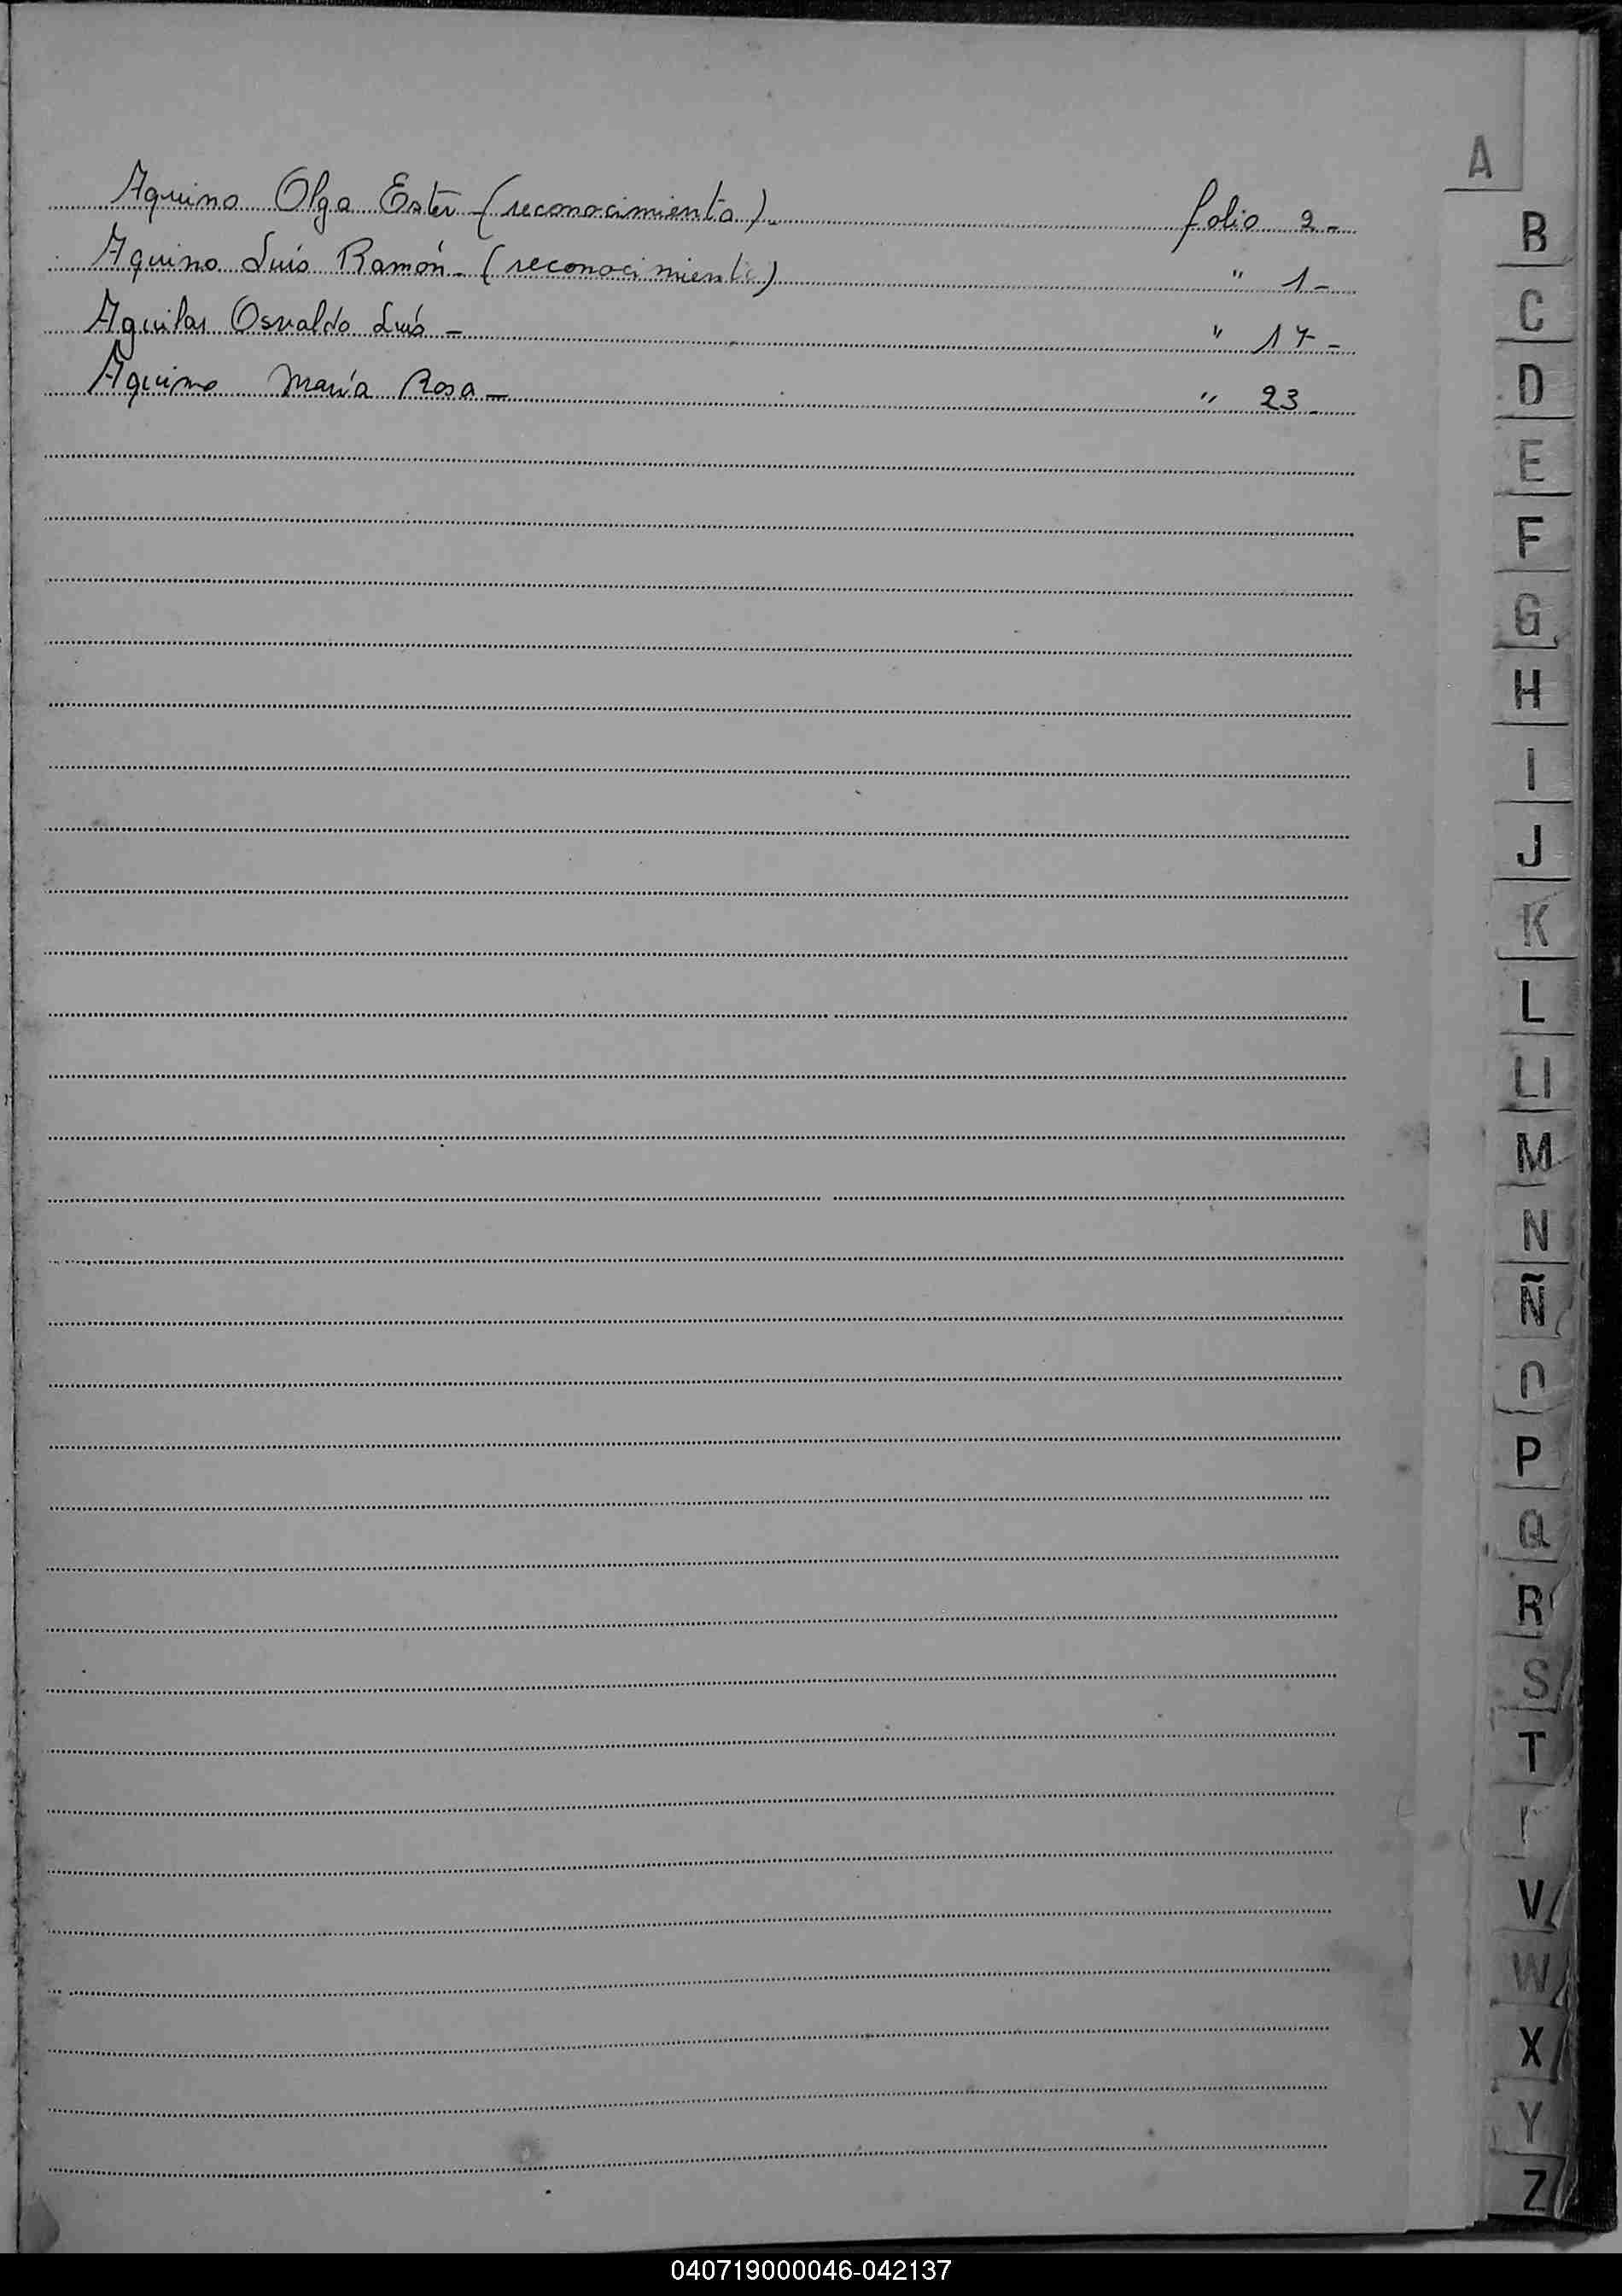 A
Aquino Olga Ester - (reconocimiento). folio 2 -
Aquino Luis Ramón - (reconocimiento) " 1 -
Aguilar Osvaldo Luis - " 17 -
Aquino María Rosa - " 23 -
B
C
D
E
F
G
H
I
J
K
L
Ll
M
N
Ñ
O
P
Q
R
S
T
V
W
X
Y
Z
040719000046-042137